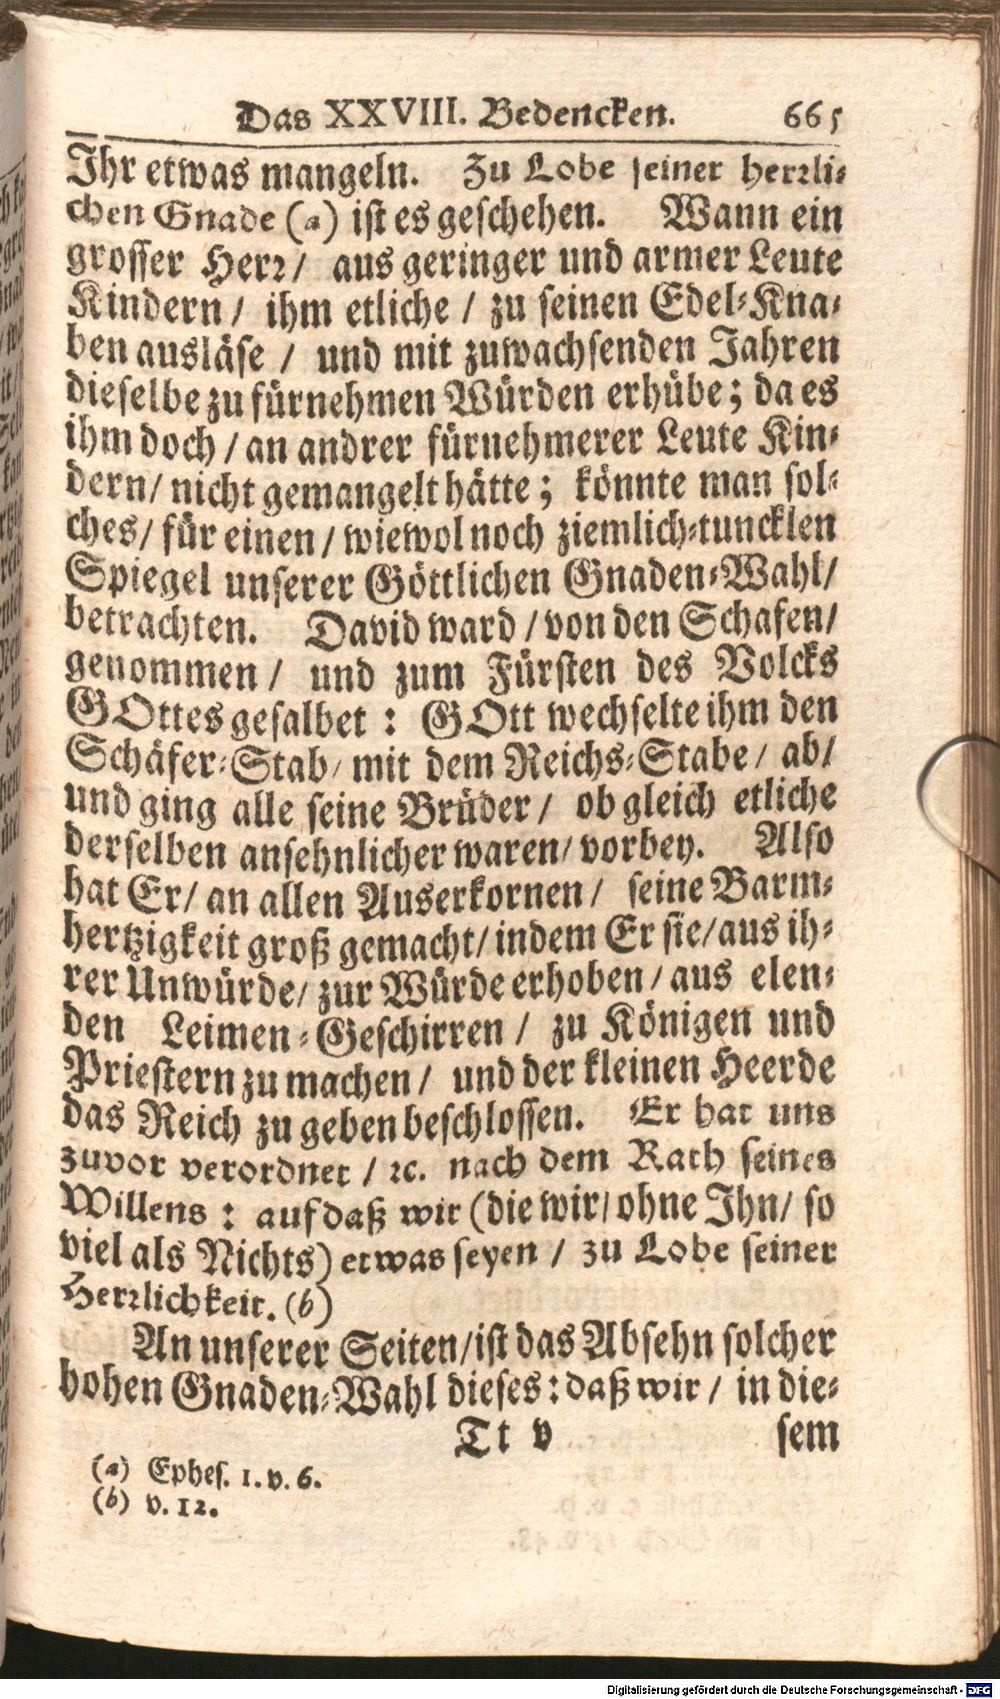 Das XXVIII. Bedencken. 665
Ihr etwas mangeln. Zu Lobe seiner Herrli-
chen Gnade (a) ist es geschehen. Wann ein
grosser Herr/ aus geringer und armer Leute
Kindern/ ihm etliche/ zu seinen Edel-Kna-
ben ausläse/ und mit zuwachsenden Jahren
dieselbe zu fürnehmen Würden erhübe; da es
ihm doch/ an andrer fürnehmerer Leute Kin-
dern/ nicht gemangelt hätte; könnte man sol-
ches/ für einen/ wiewol noch ziemlich-tuncklen
Spiegel unserer Göttlichen Gnaden-Wahl/
betrachten. David ward/ von den Schafen/
genommen/ und zum Fürsten des Volcks
GOttes gesalbet: GOtt wechselte ihm den
Schäfer-Stab/ mit dem Reichs-Stabe/ ab/
und ging alle seine Brüder/ ob gleich etliche
derselben ansehnlicher waren/ vorbey. Also
hat Er/ an allen Auserkornen/ seine Barm-
hertzigkeit groß gemacht/ indem Er sie/ aus ih-
rer Unwürde/ zur Würde erhoben/ aus elen-
den Leimen-Geschirren/ zu Königen und
Priestern zu machen/ und der kleinen Heerde
das Reich zu geben beschlossen. Er hat uns
zuvor verordnet/ ꝛc. nach dem Rath seines
Willens: auf daß wir (die wir/ ohne Ihn/ so
viel als Nichts) etwas seyen/ zu Lobe seiner
Herrlichkeit. (b)
An unserer Seiten/ ist das Absehn solcher
hohen Gnaden-Wahl dieses: daß wir/ in die-
Tt v sem
(a) Ephes. 1. v. 6.
(b) v. 12.
Digitalisierung gefördert durch die Deutsche Forschungsgemeinschaft - DFG